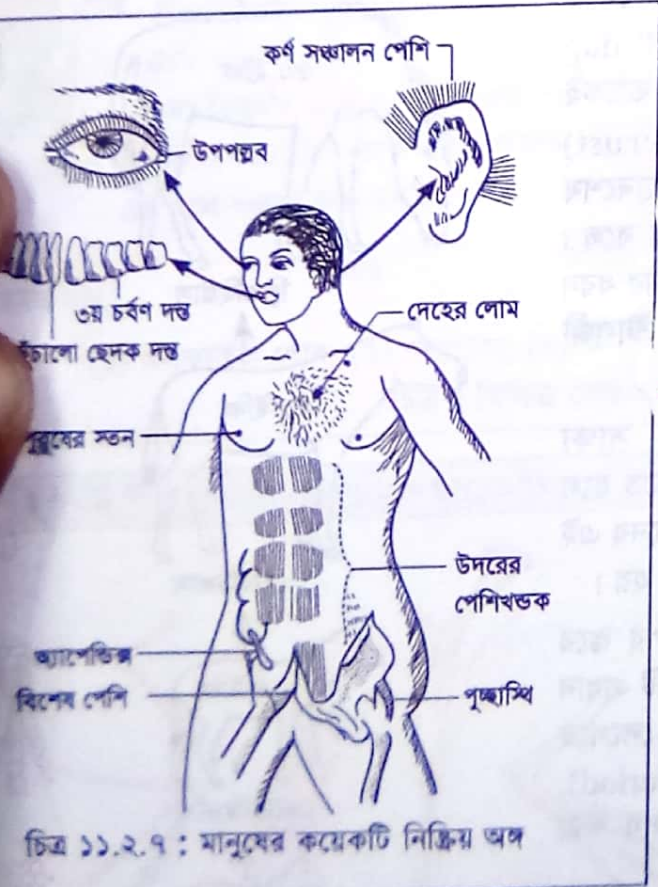 কর্ণ সঞ্চালন পেশি
উপপল্লব
৩য় চর্বণ দন্ত
ছেদক দন্ত
দেহের লোম
স্তন
উদরের
পেশিখন্ডক
অ্যাপেন্ডিক্স
বিশেষ পেশি
পুচ্ছাস্থি
চিত্র ১১.২.৭ : মানুষের কয়েকটি নিষ্ক্রিয় অঙ্গ